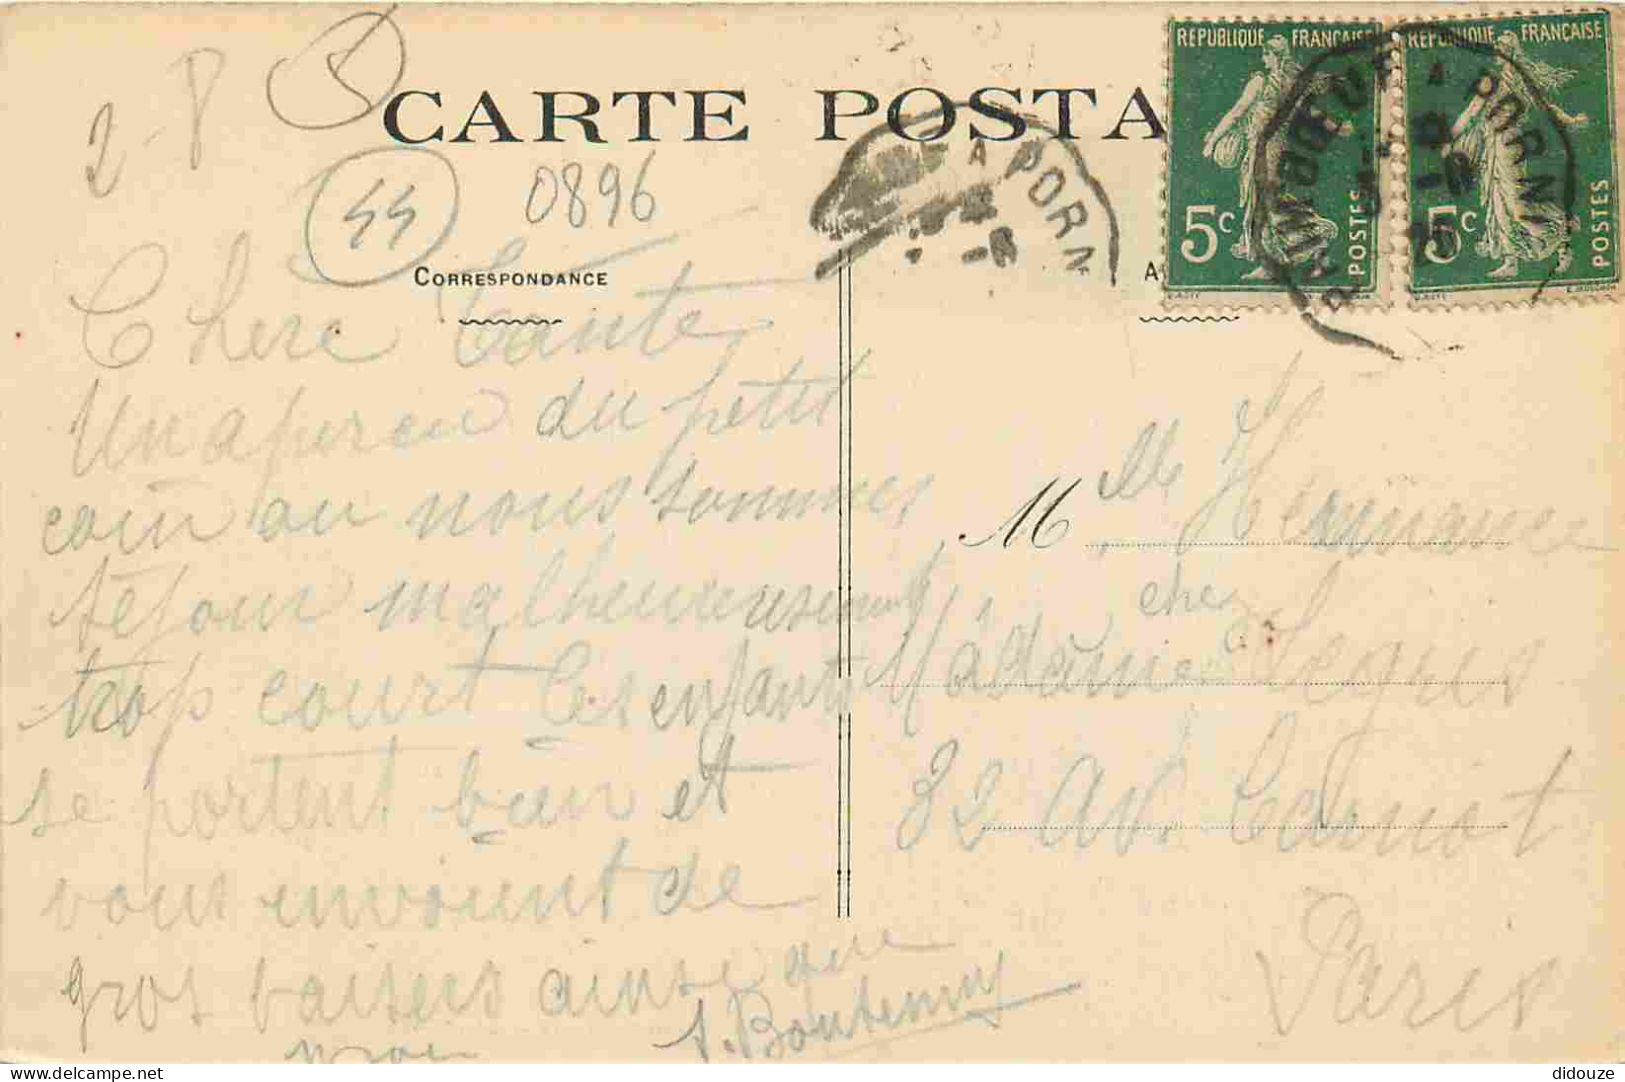 2-8
5
CARTE POSTA
RÉPUBLIQUE FRANÇAISE
RÉPUBLIQUE FRANÇAISE
A PORN
A PORNIC
44
0896
5c
POSTES
5c
POSTES
CORRESPONDANCE
A
Chere Tante
Un apercu du petit
coin ou nous sommes
séjour malheureusement
trop court Les enfants
se portent bien et
vous envoient de
gros baisers ainsi que
moi
A. Boutemy
Mlle Hermance
chez
Madame Legris
32 Av. Carnot
Paris
didouze